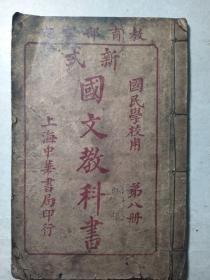 教育部審定
新式
國民學校用 第八册
國文教科書
上海中華書局印行